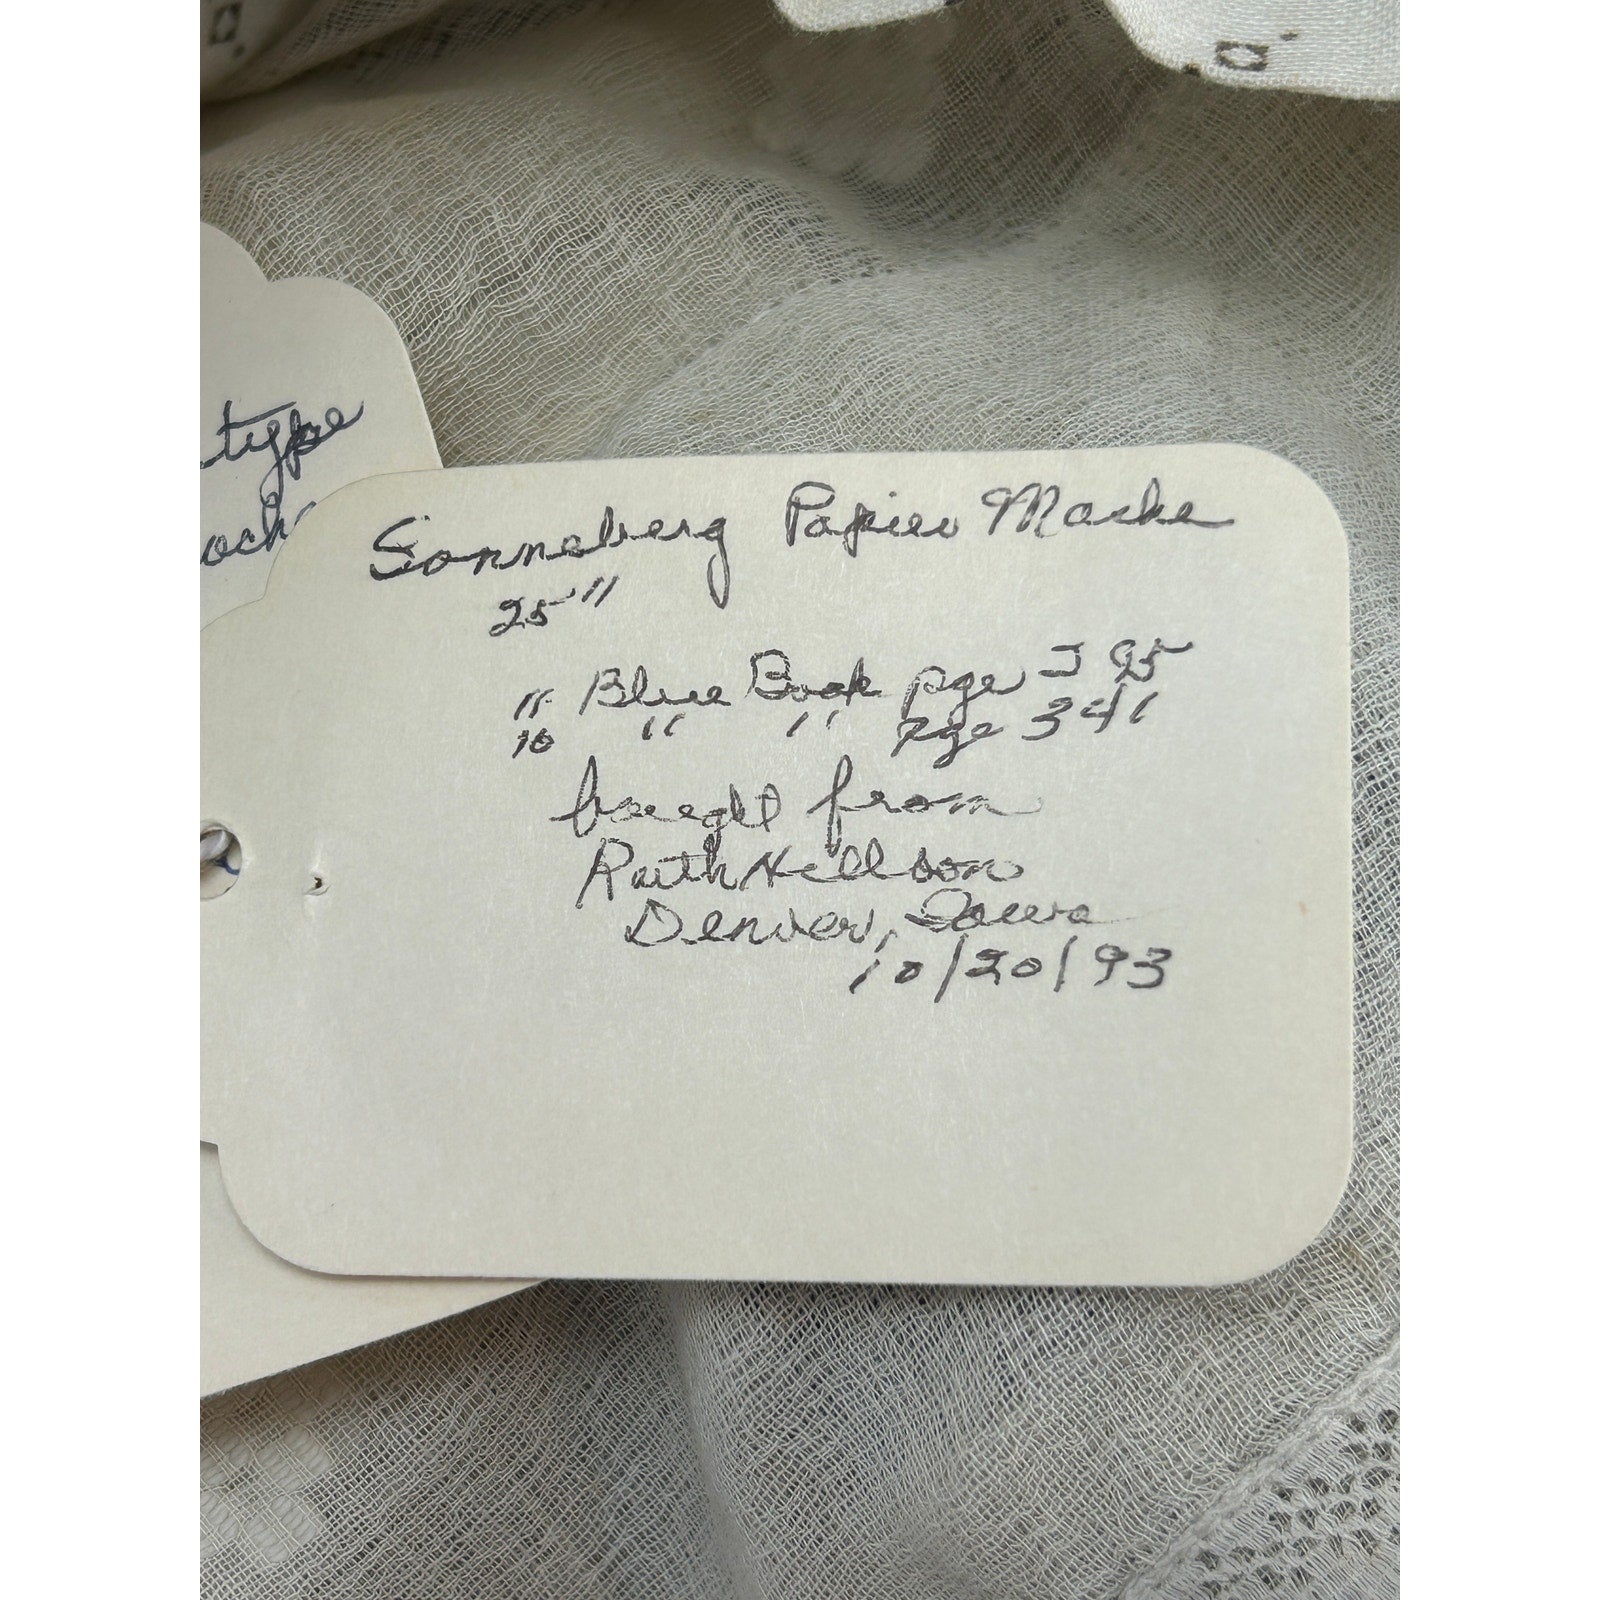 a.
type
och
Sonneberg Papier Mache
25"
11 Blue Book pge 295
10 " " Pge 341
bought from
Ruth
Denver, Iowa
10/20/93